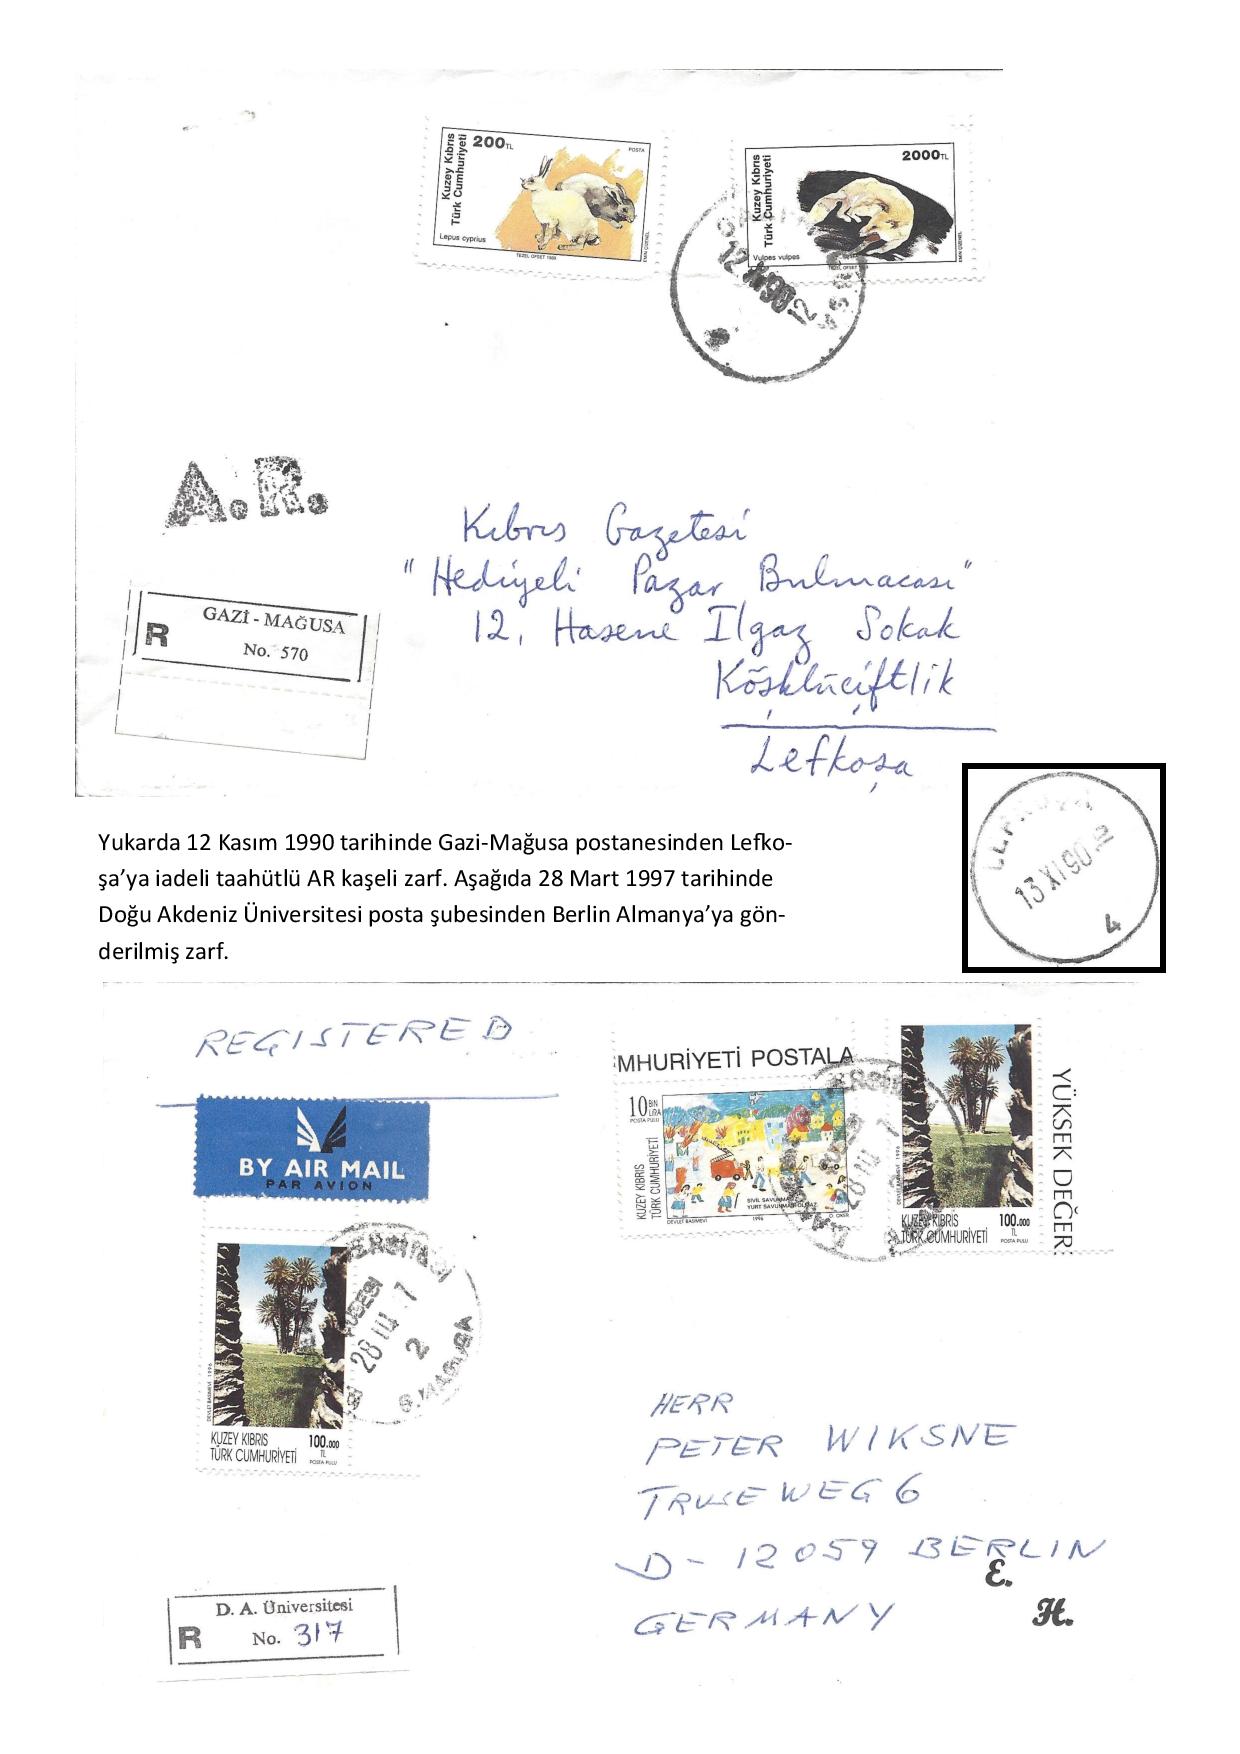 Kuzey Kıbrıs
Türk Cumhuriyeti
200TL
POSTA
Lepus cyprius
TEZEL OFSET 1989
EMİN ÇİZENEL
Kuzey Kıbrıs
Türk Cumhuriyeti
2000TL
Vulpes vulpes
EMİN ÇİZENEL
12 XI 90 12
A.R.
Kıbrıs Gazetesi
"Hediyeli Pazar Bulmacası"
12, Hasene Ilgaz Sokak
Köşklüçiftlik
Lefkoşa
R
GAZİ - MAĞUSA
No. 570
LEFKOŞA
13 XI 90
4
Yukarda 12 Kasım 1990 tarihinde Gazi-Mağusa postanesinden Lefko-
şa’ya iadeli taahütlü AR kaşeli zarf. Aşağıda 28 Mart 1997 tarihinde
Doğu Akdeniz Üniversitesi posta şubesinden Berlin Almanya’ya gön-
derilmiş zarf.
REGISTERED
BY AIR MAIL
PAR AVION
MHURİYETİ POSTALA
10 BİN
LİRA
POSTA PULU
KUZEY KIBRIS
TÜRK CUMHURİYETİ
SİVİL SAVUNMA
YURT SAVUNMASI
DEVLET BASIMEVİ
1996
28 III 7
DEVLET BASIMEVİ 1996
KUZEY KIBRIS
TÜRK CUMHURİYETİ
100.000
TL
POSTA PULU
YÜKSEK DEĞER
DEVLET BASIMEVİ 1996
KUZEY KIBRIS
TÜRK CUMHURİYETİ
100.000
TL
POSTA PULU
28 III 7
2
G.MAĞUSA
HERR
PETER WIKSNE
TRUSEWEG 6
D - 12059 BERLIN
GERMANY
E.
H.
R
D. A. Üniversitesi
No. 317